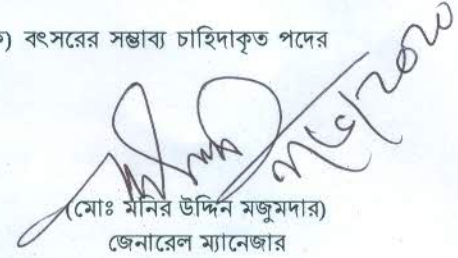 ) বৎসরের সম্ভাব্য চাহিদাকৃত পদের
(মোঃ মনির উদ্দিন মজুমদার)
জেনারেল ম্যানেজার